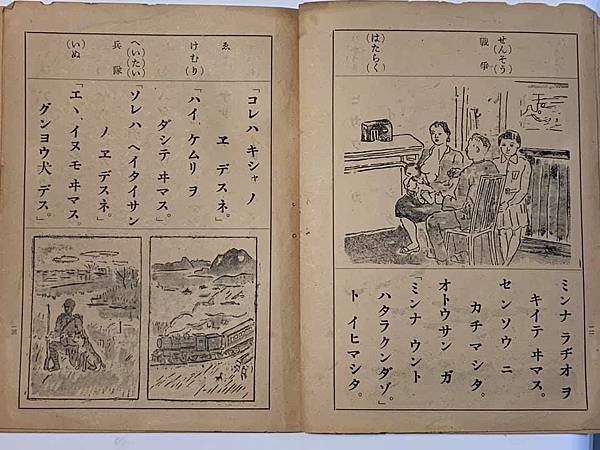 (せんそう)
戰爭
(はたらく)
ミンナ ラヂオ ヲ
キイテ ヰマス。
センソウ ニ
カチマシタ。
オトウサン ガ
「ミンナ ウント
ハタラクンダゾ」
ト イヒマシタ。
ゑ
(けむり)
(へいたい)
兵隊
(いぬ)
「コレハ キシャ ノ
ヱ デスネ。」
「ハイ、ケムリ ヲ
ダシテ ヰマス。」
「ソレハ ヘイタイサン
ノ ヱ デスネ。」
「エヽ、イヌモ ヰマス。
グンヨウ犬 デス。」